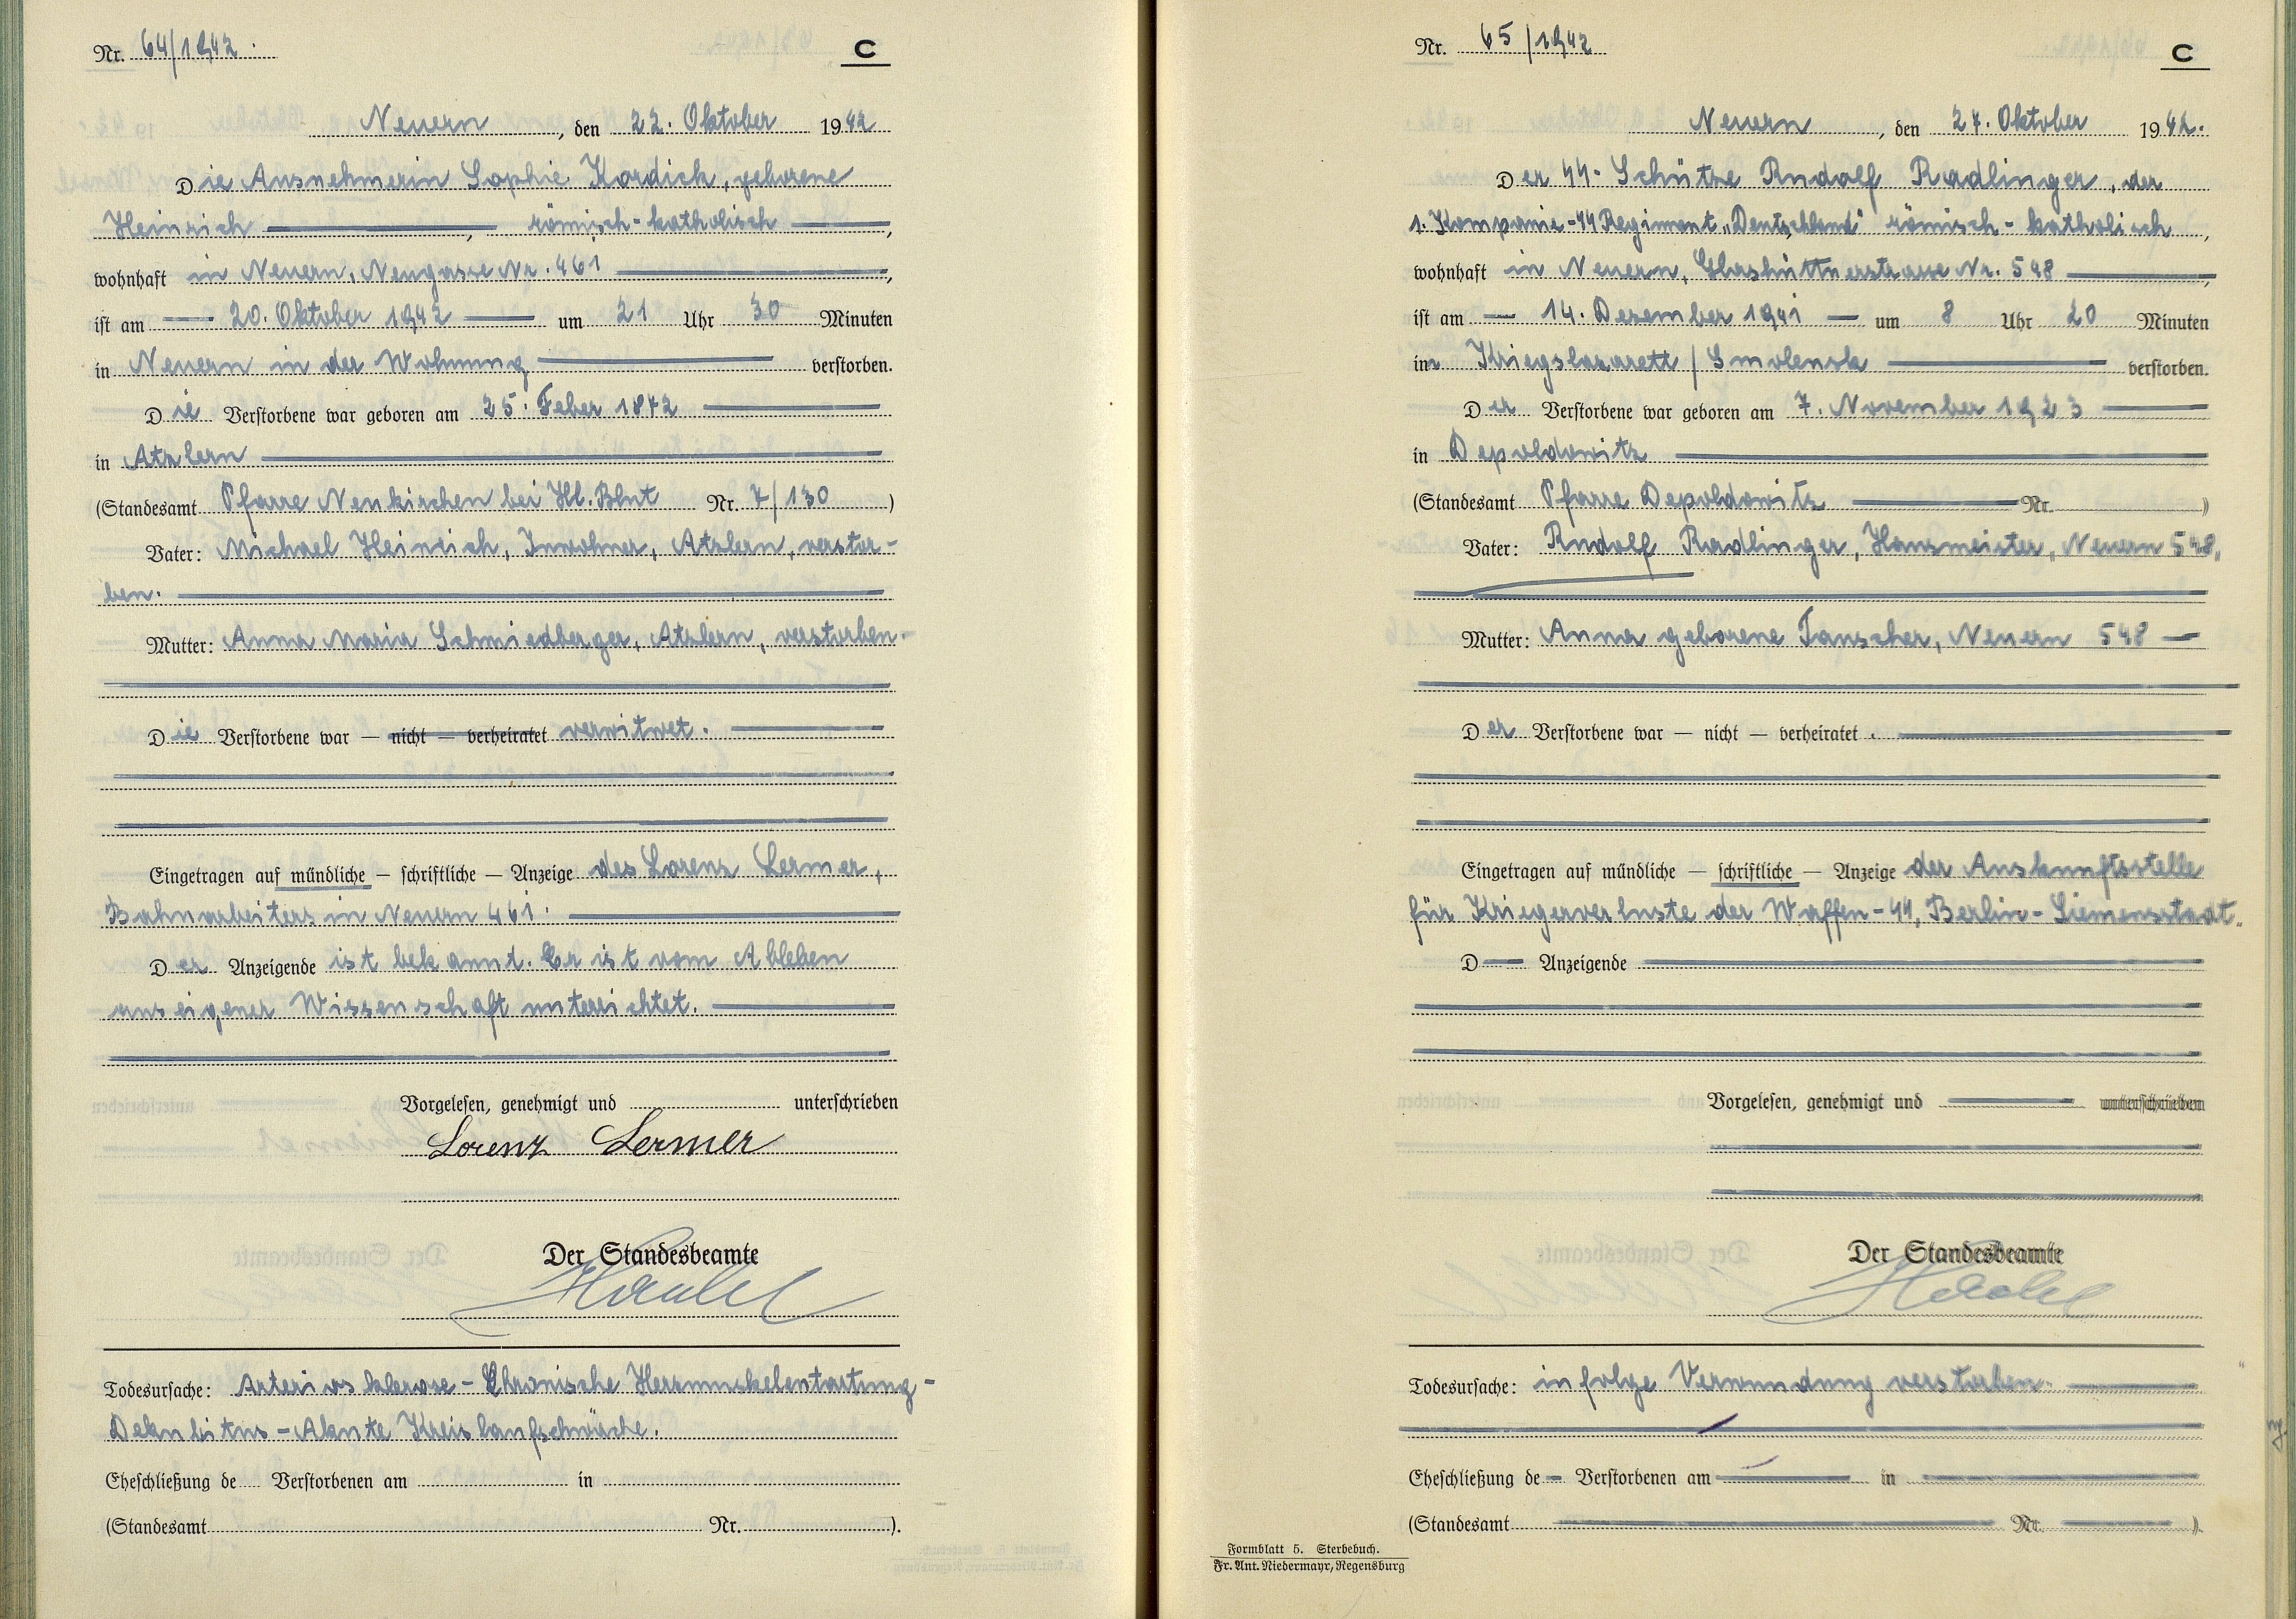 Nr. 64/1942. C
Neuern, den 22. Oktober 1942
Die Ausnehmerin Sophie Kordick, geborene
Heinrich, römisch-katholisch,
wohnhaft in Neuern, Neugasse Nr. 461,
ist am 20. Oktober 1942 um 21 Uhr 30 Minuten
in Neuern in der Wohnung verstorben.
Die Verstorbene war geboren am 25. Feber 1872
in Atzlern
(Standesamt Pfarre Neukirchen bei Hl. Blut Nr. 7/130)
Vater: Michael Heinrich, Inwohner, Atzlern, verstor-
ben.
Mutter: Anna Maria Schmiedberger, Atzlern, verstorben.
Die Verstorbene war — nicht — verheiratet verwitwet.
Eingetragen auf mündliche — schriftliche — Anzeige des Lorenz Lermer,
Bahnarbeiters in Neuern 461.
Der Anzeigende ist bekannt. Er ist vom Ableben
aus eigener Wissenschaft unterrichtet.
Vorgelesen, genehmigt und unterschrieben
Lorenz Lermer
Der Standesbeamte
Todesursache: Arteriosklerose - Chronische Herzmuskelentartung -
Dekubitus - Akute Kreislaufschwäche.
Eheschließung de Verstorbenen am in
(Standesamt Nr. ).
Nr. 65/1942 C
Neuern, den 27. Oktober 1942.
Der SS-Schütze Rudolf Radlinger, der
1. Kompanie-SS Regiment "Deutschland" römisch-katholisch,
wohnhaft in Neuern, Glashüttnerstrasse Nr. 548,
ist am 14. Dezember 1941 um 8 Uhr 20 Minuten
im Kriegslazarett / Smolensk verstorben.
Der Verstorbene war geboren am 7. November 1923
in Depoldowitz
(Standesamt Pfarre Depoldowitz Nr. )
Vater: Rudolf Radlinger, Hausmeister, Neuern 548,
Mutter: Anna geborene Tauscher, Neuern 548 —
Der Verstorbene war — nicht — verheiratet.
Eingetragen auf mündliche — schriftliche — Anzeige der Auskunftsstelle
für Kriegerverluste der Waffen-SS, Berlin-Siemensstadt.
D— Anzeigende
Vorgelesen, genehmigt und unterschrieben
Der Standesbeamte
Todesursache: infolge Verwundung verstorben
Eheschließung de— Verstorbenen am in
(Standesamt Nr. ).
Formblatt 5. Sterbebuch.
Fr. Ant. Niedermayr, Regensburg